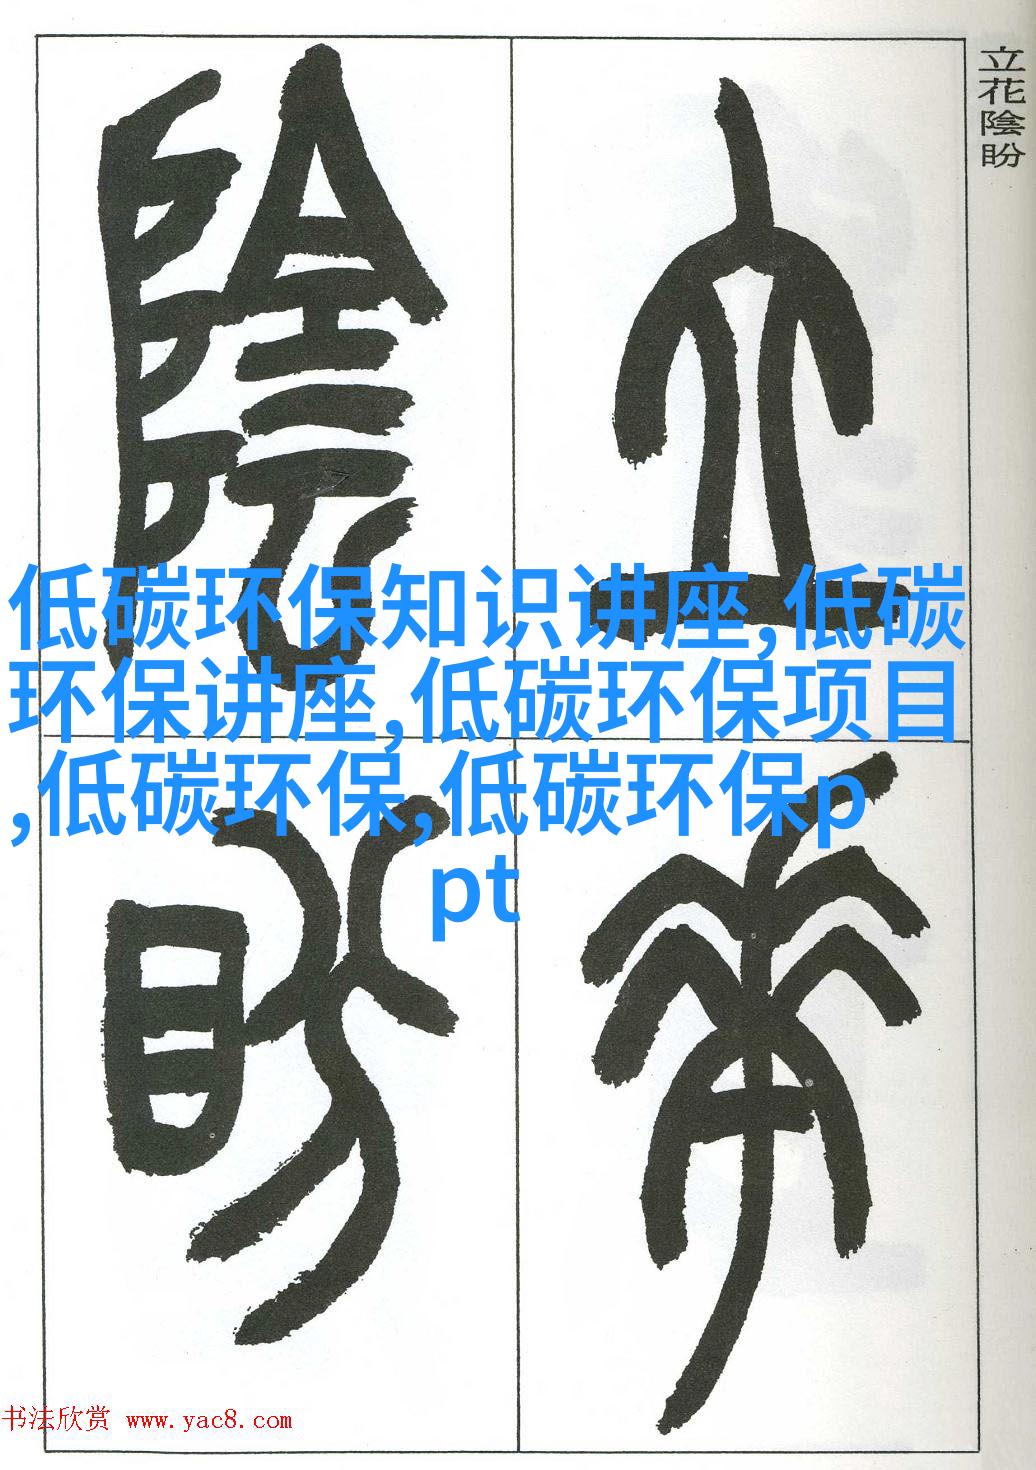 立花陰盼
立
花
陰
盼
低碳环保知识讲座,低碳
环保讲座,低碳环保项目
,低碳环保,低碳环保p
pt
书法欣赏 www.yac8.com